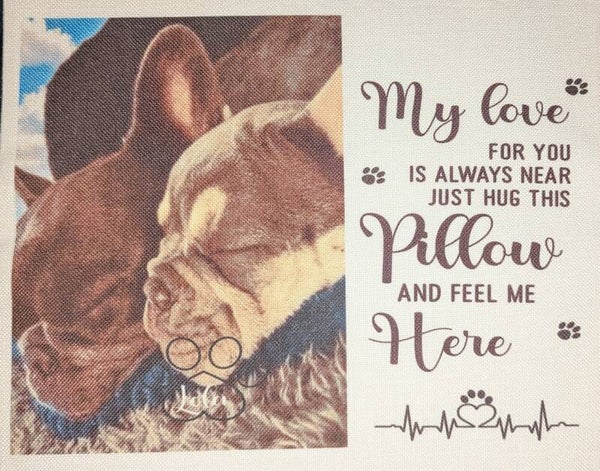 My love
FOR YOU
IS ALWAYS NEAR
JUST HUG THIS
Pillow
AND FEEL ME
Here